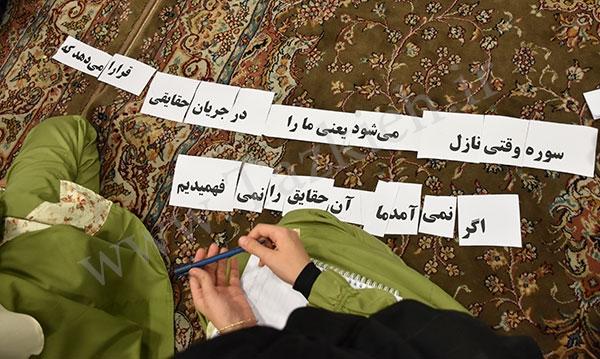 سوره وقتی نازل می‌شود یعنی ما را در جریان حقایقی قرار می‌دهد ک
اگر نمی آمد ما آن حقایق را نمی فهمیدیم